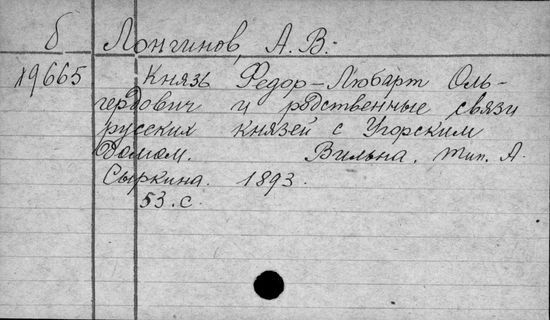 б Лонгинов, А. В.
19665 Князь Федор-Любарт Оль-
гердович и родственные связи
русских князей с Угорским
домом. Вильна. тип. А.
Сыркина. 1893.
53. с.